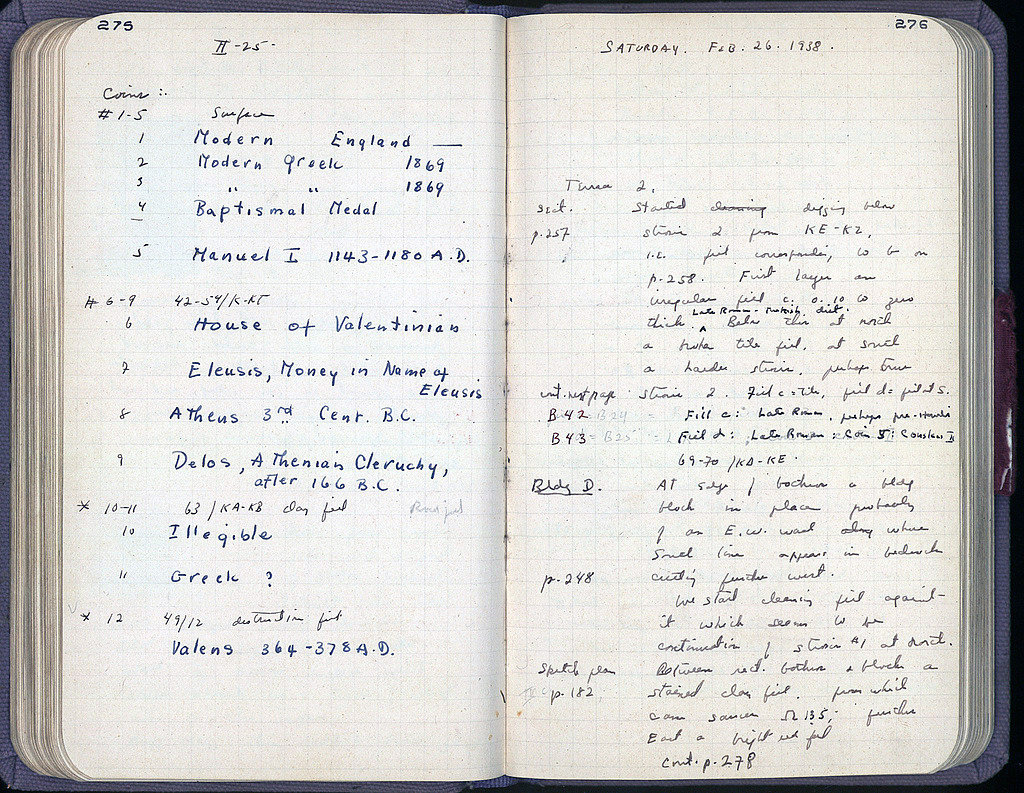 275
II-25-
Coins :.
#1-5 Surface
1 Modern England —
2 Modern Greek 1869
3 " " 1869
4 Baptismal Medal
5 Manuel I 1143-1180 A.D.
# 6-9 42-54/K-KΓ
6 House of Valentinian
7 Eleusis, Money in Name of
Eleusis
8 Athens 3rd Cent. B.C.
9 Delos, Athenian Cleruchy,
after 166 B.C.
* 10-11 63/KA-KB clay fill
10 Illegible
11 Greek ?
* 12 49/12 destruction fill
Valens 364-378 A.D.
276
SATURDAY. FEB. 26. 1938.
2.
Sect. Started cleaning digging below
p.257 strosis 2 from KE-KZ,
i.e. fill corresponding to b on
p.258. First layer an
irregular fill c. 0.10 to zero
Late Roman - Turkish dist.
thick. Below this at north
a broken tile fill, at south
a harder strosis, perhaps true
cont. next page strosis 2. Fill c = tile, fill d = fill at S.
B42 = B24 = Fill c: Late Roman, perhaps pre-
B43 = B25 = L Fill d: Late Roman: Coin 5: Constans II
69-70/KA-KE.
Bldg D. At edge of bothros a bldg
block in place probably
of an E.W. wall along whose
South line appears in bedrock
p.248 cutting further west.
We start cleaning fill against
it which seems to be
continuation of strosis #1 at north.
Sketch plan Between rect. bothros & block a
p.182 stained clay fill, from which
came saucer Ω 135; further
East a bright red fill
Cont. p.278